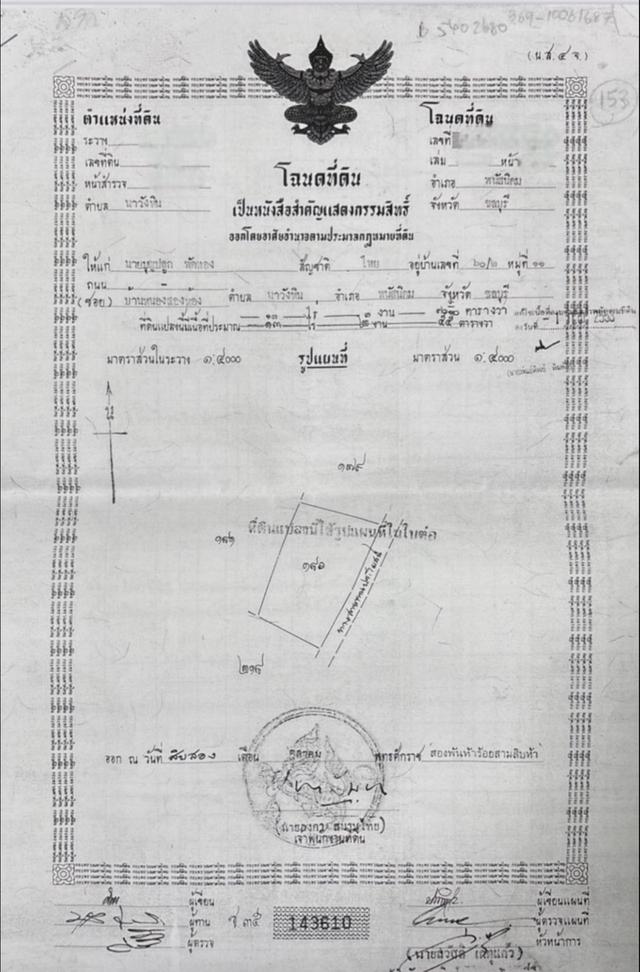 B 5402680
(น.ส.๔ จ.)
153
ตำแหน่งที่ดิน
ระวาง
เลขที่ดิน
หน้าสำรวจ
ตำบล นาวังหิน
โฉนดที่ดิน
เลขที่
เล่ม หน้า
อำเภอ พนัสนิคม
จังหวัด ชลบุรี
โฉนดที่ดิน
เป็นหนังสือสำคัญแสดงกรรมสิทธิ์
ออกโดยอาศัยอำนาจตามประมวลกฎหมายที่ดิน
ให้แก่ นายบุญปลูก พัดทอง สัญชาติ ไทย อยู่บ้านเลขที่ ๖๐/๒ หมู่ที่ ๑๑
ถนน
(ซอย) บ้านหนองสองห้อง ตำบล นาวังหิน อำเภอ พนัสนิคม จังหวัด ชลบุรี
ที่ดินแปลงนี้มีเนื้อที่ประมาณ ๑๓ ไร่ ๒ งาน ตารางวา
มาตราส่วนในระวาง ๑:๔๐๐๐ รูปแผนที่ มาตราส่วน ๑:๔๐๐๐
น
๑๗๙
ที่ดินแปลงนี้ได้รูปแผนที่ในใบต่อ
๑๘๑
๑๘๐
ทางสาธารณประโยชน์
๒๑๙
ออก ณ วันที่ สิบสอง เดือน ตุลาคม พุทธศักราช สองพันห้าร้อยสามสิบห้า
เจ้าพนักงานที่ดิน
ผู้เขียน
ผู้ทาน
ผู้ตรวจ
ช ๓๕
143610
ผู้เขียนแผนที่
ผู้ตรวจแผนที่
หัวหน้าการ